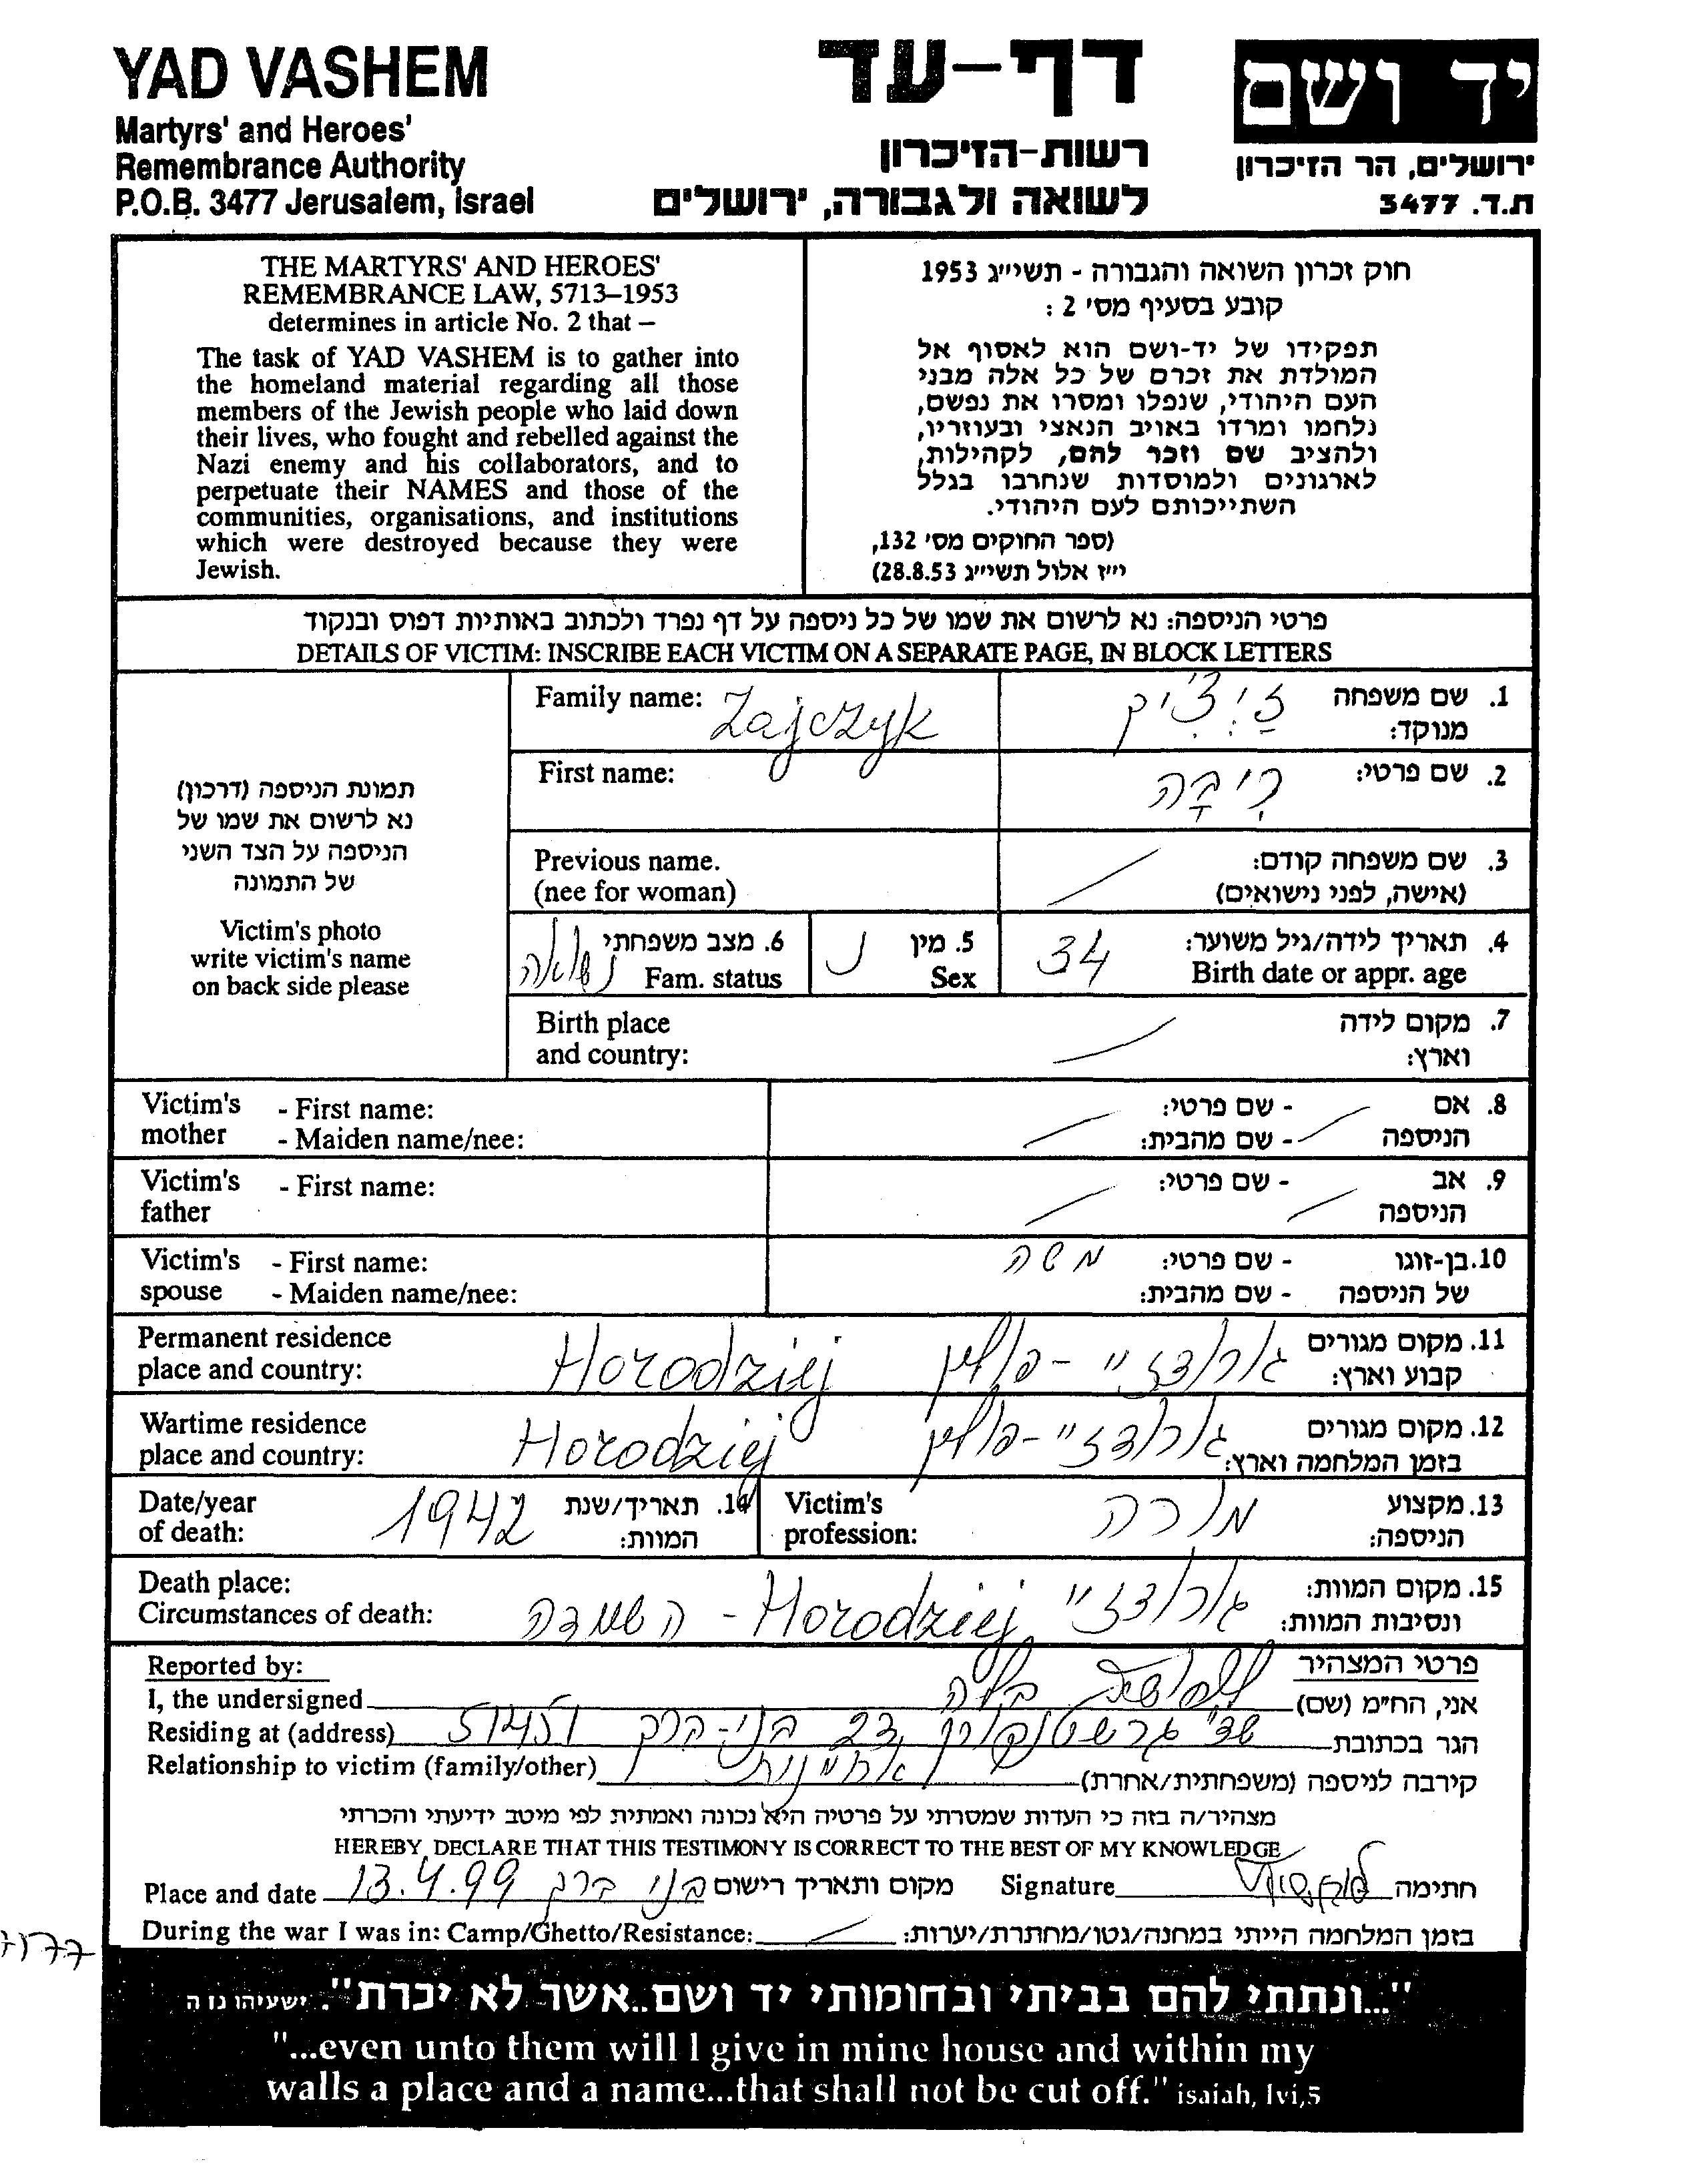 YAD VASHEM
Martyrs' and Heroes'
Remembrance Authority
P.O.B. 3477 Jerusalem, Israel
דף-עד
רשות-הזיכרון
לשואה ולגבורה, ירושלים
יד ושם
ירושלים, הר הזיכרון
ת.ד. 3477
THE MARTYRS' AND HEROES'
REMEMBRANCE LAW, 5713–1953
determines in article No. 2 that –
The task of YAD VASHEM is to gather into
the homeland material regarding all those
members of the Jewish people who laid down
their lives, who fought and rebelled against the
Nazi enemy and his collaborators, and to
perpetuate their NAMES and those of the
communities, organisations, and institutions
which were destroyed because they were
Jewish.
חוק זכרון השואה והגבורה - תשי״ג 1953
קובע בסעיף מס׳ 2 :
תפקידו של יד-ושם הוא לאסוף אל
המולדת את זכרם של כל אלה מבני
העם היהודי, שנפלו ומסרו את נפשם,
נלחמו ומרדו באויב הנאצי ובעוזריו,
ולהציב שם וזכר להם, לקהילות,
לארגונים ולמוסדות שנחרבו בגלל
השתייכותם לעם היהודי.
(ספר החוקים מס׳ 132,
י״ז אלול תשי״ג 28.8.53)
פרטי הניספה: נא לרשום את שמו של כל ניספה על דף נפרד ולכתוב באותיות דפוס ובנקוד
DETAILS OF VICTIM: INSCRIBE EACH VICTIM ON A SEPARATE PAGE, IN BLOCK LETTERS
תמונת הניספה (דרכון)
נא לרשום את שמו של
הניספה על הצד השני
של התמונה
Victim's photo
write victim's name
on back side please
Family name: Zajczyk
1. שם משפחה
מנוקד: זַיְצִ׳יק
First name:
2. שם פרטי: רִיבָה
Previous name.
(nee for woman)
3. שם משפחה קודם:
(אישה, לפני נישואים)
6. מצב משפחתי
Fam. status נשואה
5. מין נ
Sex
4. תאריך לידה/גיל משוער: 34
Birth date or appr. age
Birth place
and country:
7. מקום לידה
וארץ:
Victim's - First name:
mother - Maiden name/nee:
8. אם - שם פרטי:
הניספה - שם מהבית:
Victim's - First name:
father
9. אב - שם פרטי:
הניספה
Victim's - First name:
spouse - Maiden name/nee:
10. בן-זוגו - שם פרטי: משה
של הניספה - שם מהבית:
Permanent residence
place and country: Horodziej
11. מקום מגורים
קבוע וארץ: גורודזיי - פולין
Wartime residence
place and country: Horodziej
12. מקום מגורים
בזמן המלחמה וארץ: גורודזיי - פולין
Date/year
of death: 1942
14. תאריך/שנת
המוות:
Victim's
profession:
13. מקצוע
הניספה: מורה
Death place:
Circumstances of death:
15. מקום המוות:
ונסיבות המוות: גורודזיי Horodziej - השמדה
Reported by:
פרטי המצהיר
I, the undersigned
אני, הח״מ (שם)
Residing at (address)
הגר בכתובת שד׳ גרשטנקורן 23 בני-ברק 51451
Relationship to victim (family/other)
קירבה לניספה (משפחתית/אחרת)
מצהיר/ה בזה כי העדות שמסרתי על פרטיה היא נכונה ואמתית לפי מיטב ידיעתי והכרתי
HEREBY DECLARE THAT THIS TESTIMONY IS CORRECT TO THE BEST OF MY KNOWLEDGE
Place and date 13.4.99 מקום ותאריך רישום בני ברק
Signature חתימה
During the war I was in: Camp/Ghetto/Resistance:
בזמן המלחמה הייתי במחנה/גטו/מחתרת/יערות:
"...ונתתי להם בביתי ובחומותי יד ושם..אשר לא יכרת". ישעיהו נו ה
"...even unto them will I give in mine house and within my
walls a place and a name...that shall not be cut off." isaiah, lvi,5